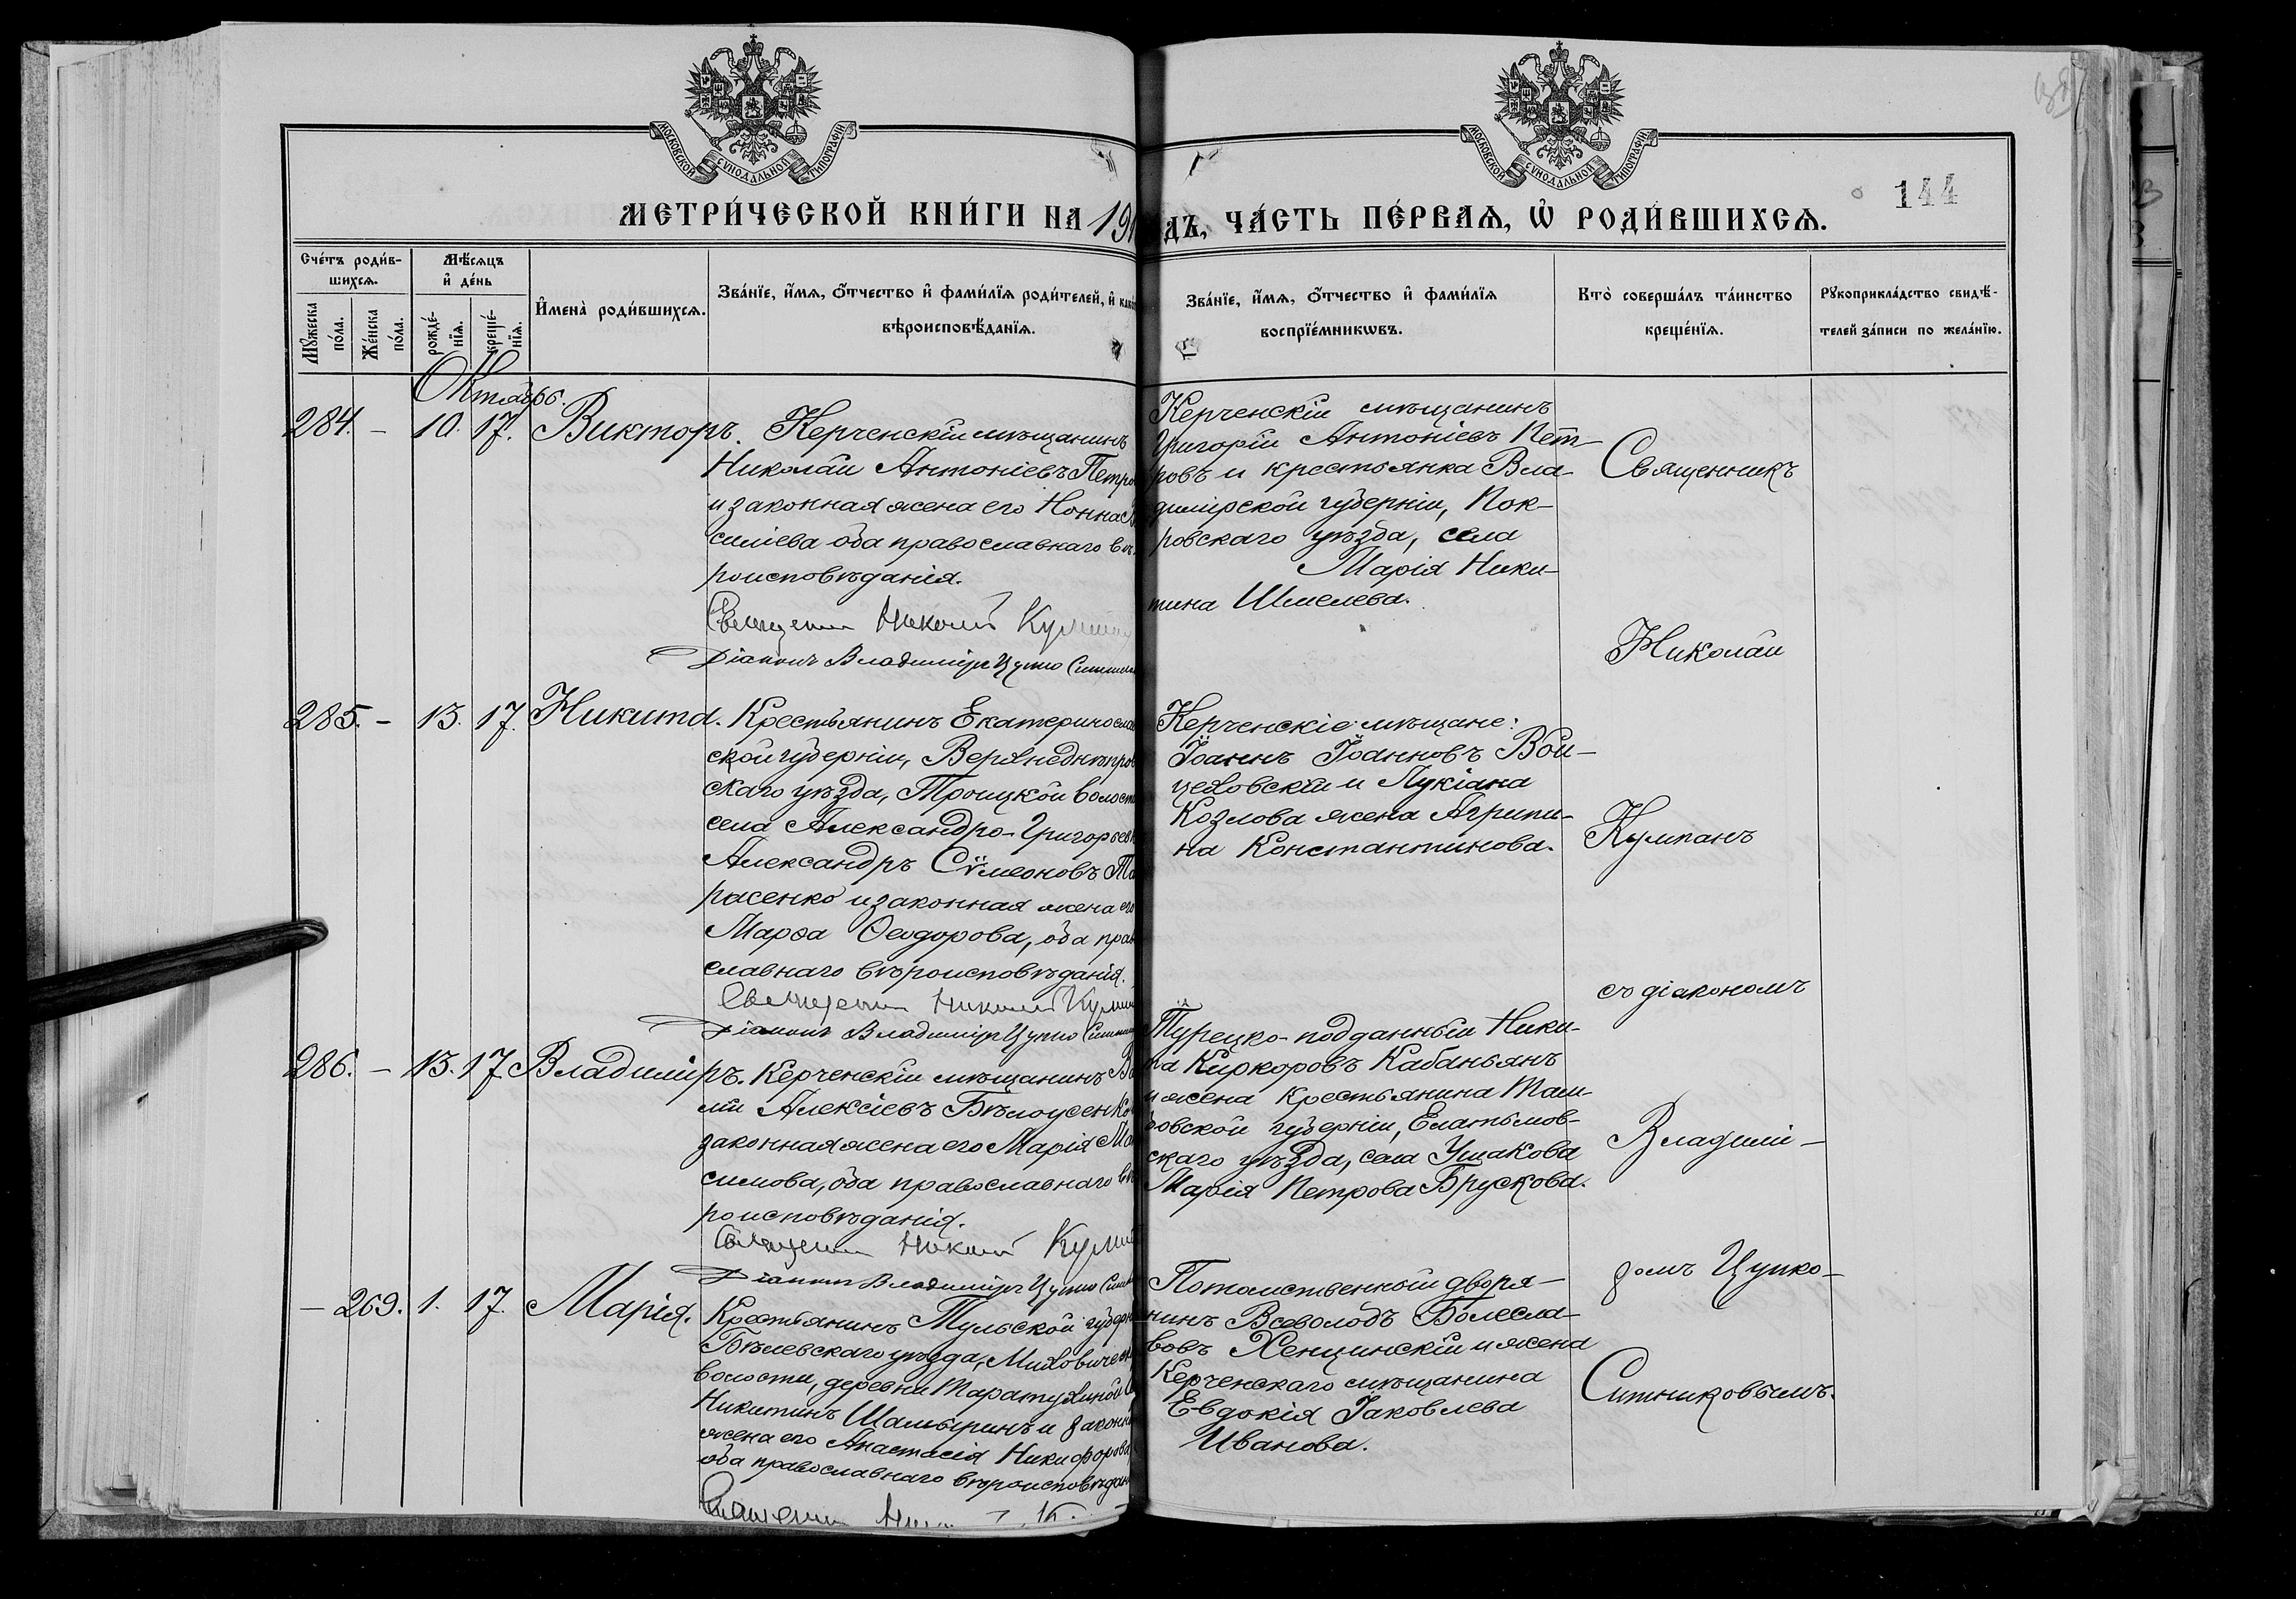 МОСКОВСКОЙ СѴНОДАЛЬНОЙ ТИПОГРАФІИ
МОСКОВСКОЙ СѴНОДАЛЬНОЙ ТИПОГРАФІИ
144
МЕТРИ́ЧЕСКОЙ КНИ́ГИ НА 191
ДЪ, ЧА́СТЬ ПЕ́РВАѦ, Ѡ҆ РОДИ́ВШИХСѦ.
Сче́тъ роди́в-
шихсѧ.
Мꙋ́жеска по́ла.
Же́нска по́ла.
Мѣ́сѧцъ
и҆ де́нь
рожде́-нїѧ.
креще́-нїѧ.
И҆мена̀ роди́вшихсѧ.
Зва́нїе, и҆́мѧ, ѻ҆́тчество и҆ фами́лїѧ роди́телей, и҆
вѣроисповѣ́данїѧ.
Зва́нїе, и҆́мѧ, ѻ҆́тчество и҆ фами́лїѧ
воспрїе́мникѡвъ.
Кто̀ соверша́лъ та́инство
креще́нїѧ.
Рꙋкоприкла́дство свидѣ́-
телей за́писи по жела́нїю.
Октябрь.
284. — 10. 17. Викторъ. Керченскій мѣщанинъ
Николай Антоніевъ Петро
и законная жена его Нонна Ва
силіева оба православнаго вѣ
роисповѣданія.
Священн Николай Кумпан
Діаконъ Владиміръ Цупко Ситник
Керченскій мѣщанинъ
Григорій Антоніевъ Пет-
ровъ и крестьянка Вла-
димірской губерніи, Пок-
ровскаго уѣзда, села
Марія Ники-
тина Шмелева.
285. — 13. 17. Никита. Крестьянинъ Екатеринослав
ской губерніи, Верхнеднѣпров
скаго уѣзда, Троицкой волости
села Александро-Григорьевк
Александръ Сѵмеоновъ Та
расенко и законная жена его
Марѳа Ѳеодорова, оба прав
славнаго вѣроисповѣданія.
Священн Николай Кумпан
Діаконъ Владиміръ Цупко Ситник
Керченскіе мѣщане:
Іоаннъ Іоанновъ Вой-
цеховскій и Лукіана
Козлова жена Агрипи-
на Константинова.
286. — 13. 17 Владиміръ. Керченскій мѣщанинъ Ва
лій Алексіевъ Бѣлоусенко
законная жена его Марія Ма
симова, оба православнаго вѣ
роисповѣданія.
Священн Николай Кумпан
Діаконъ Владиміръ Цупко Ситник
Турецко-подданный Ники-
та Киркоровъ Кабаньянъ
и жена крестьянина Там-
бовской губерніи, Елатьмов-
скаго уѣзда, села Ушакова
Марія Петрова Брускова.
— 269. 1. 17. Марія. Крестьянинъ Тульской губерн
Бѣлевскаго уѣзда, Миховическ
волости, деревни Таратухиной
Никитинъ Шамыринъ и законн
жена его Анастасія Никифорова
оба православнаго вѣроисповѣдан
Священн
Потомственный дворя-
нинъ Всеволодъ Болесла-
вовъ Хенцинскій и жена
Керченскаго мѣщанина
Евдокія Іаковлева
Иванова.
Священникъ
Николай
Кумпанъ
съ діакономъ
Владимі-
ромъ Цупко-
Ситниковымъ.